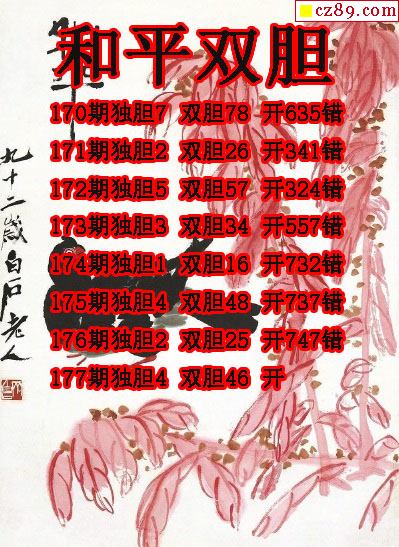 cz89.com
和平双胆
170期独胆7 双胆78 开635错
171期独胆2 双胆26 开341错
172期独胆5 双胆57 开324错
173期独胆3 双胆34 开557错
174期独胆1 双胆16 开732错
175期独胆4 双胆48 开737错
176期独胆2 双胆25 开747错
177期独胆4 双胆46 开
九十二岁白石老人